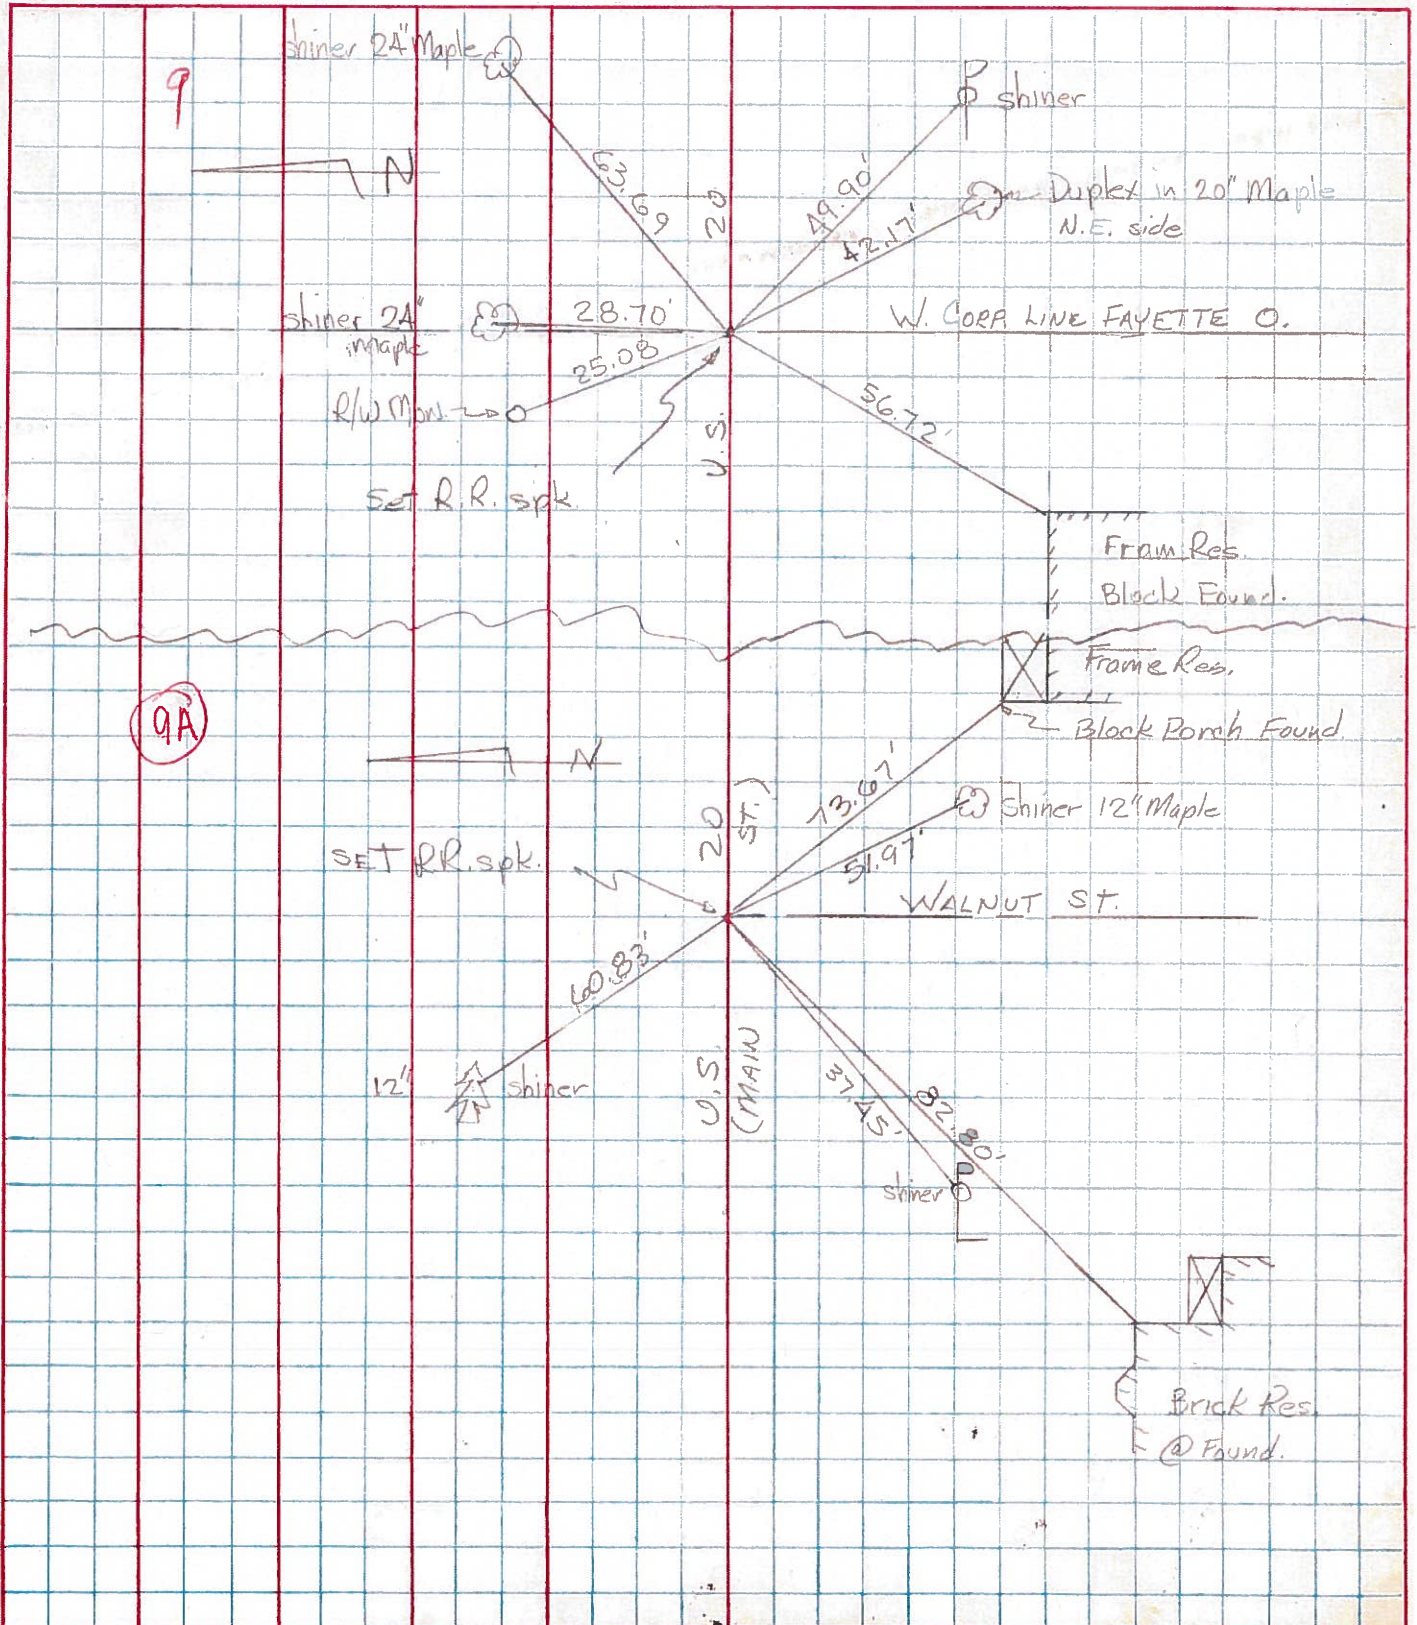 9
shiner 24" Maple
shiner
N
63.69
20
49.90'
42.17'
Duplex in 20" Maple
N.E. side
shiner 24"
maple
28.70'
W. CORP. LINE FAYETTE O.
25.08
R/W Mon.
56.72'
U.S.
Set R.R. spk.
Fram Res.
Block Found.
9A
Frame Res.
Block Porch Found.
N
73.67'
Shiner 12" Maple
20
ST.)
SET R.R. spk.
51.97'
WALNUT ST.
60.83'
12"
shiner
U.S.
(MAIN
37.45'
82.80'
shiner
Brick Res.
@ Found.